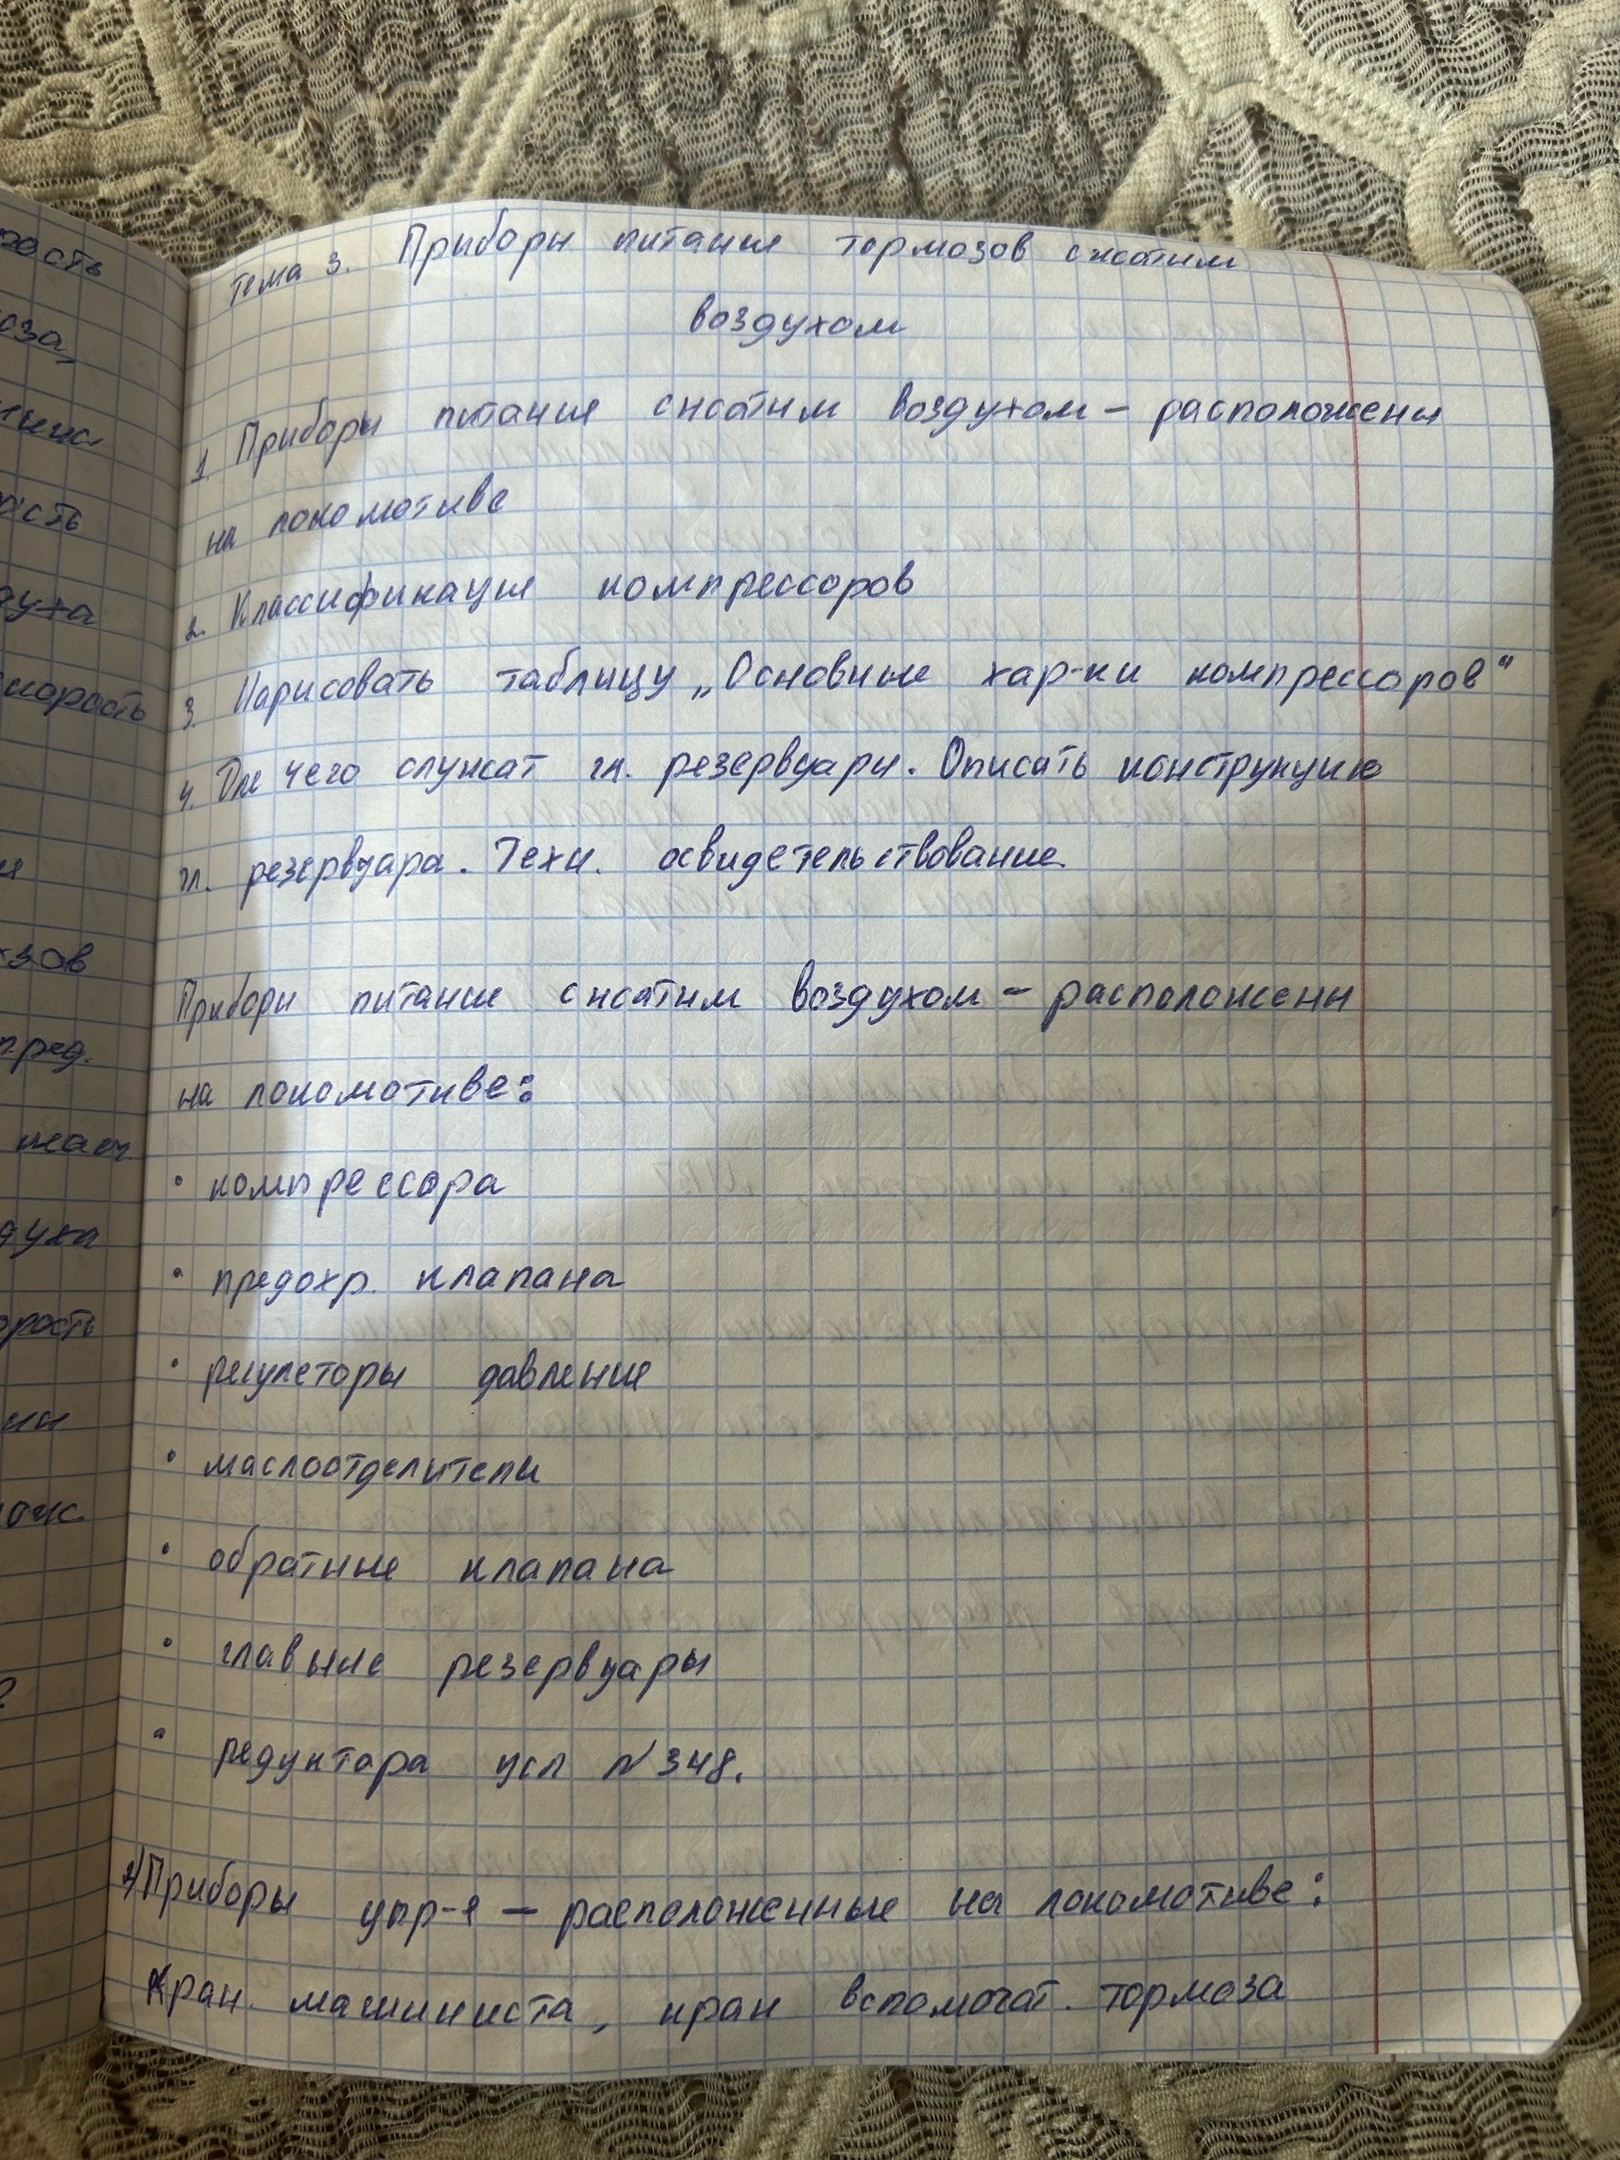 тема 3. Приборы питания тормозов сжатым
воздухом
1. Приборы питания сжатым воздухом – расположены
на локомотиве
2. Классификация компрессоров
3. Нарисовать таблицу „Основные хар-ки компрессоров“
4. Для чего служат гл. резервуары. Описать конструкцию
гл. резервуара. Техн. освидетельствование.
Приборы питания сжатым воздухом – расположены
на локомотиве:
• компрессора
• предохр. клапана
• регуляторы давления
• маслоотделители
• обратные клапана
• главные резервуары
• редуктора усл №348.
2) Приборы упр-я – расположенные на локомотиве:
Кран. машиниста, кран вспомогат. тормоза
рость
оза,
ость
духа
скорость
зов
пред.
духа
орость